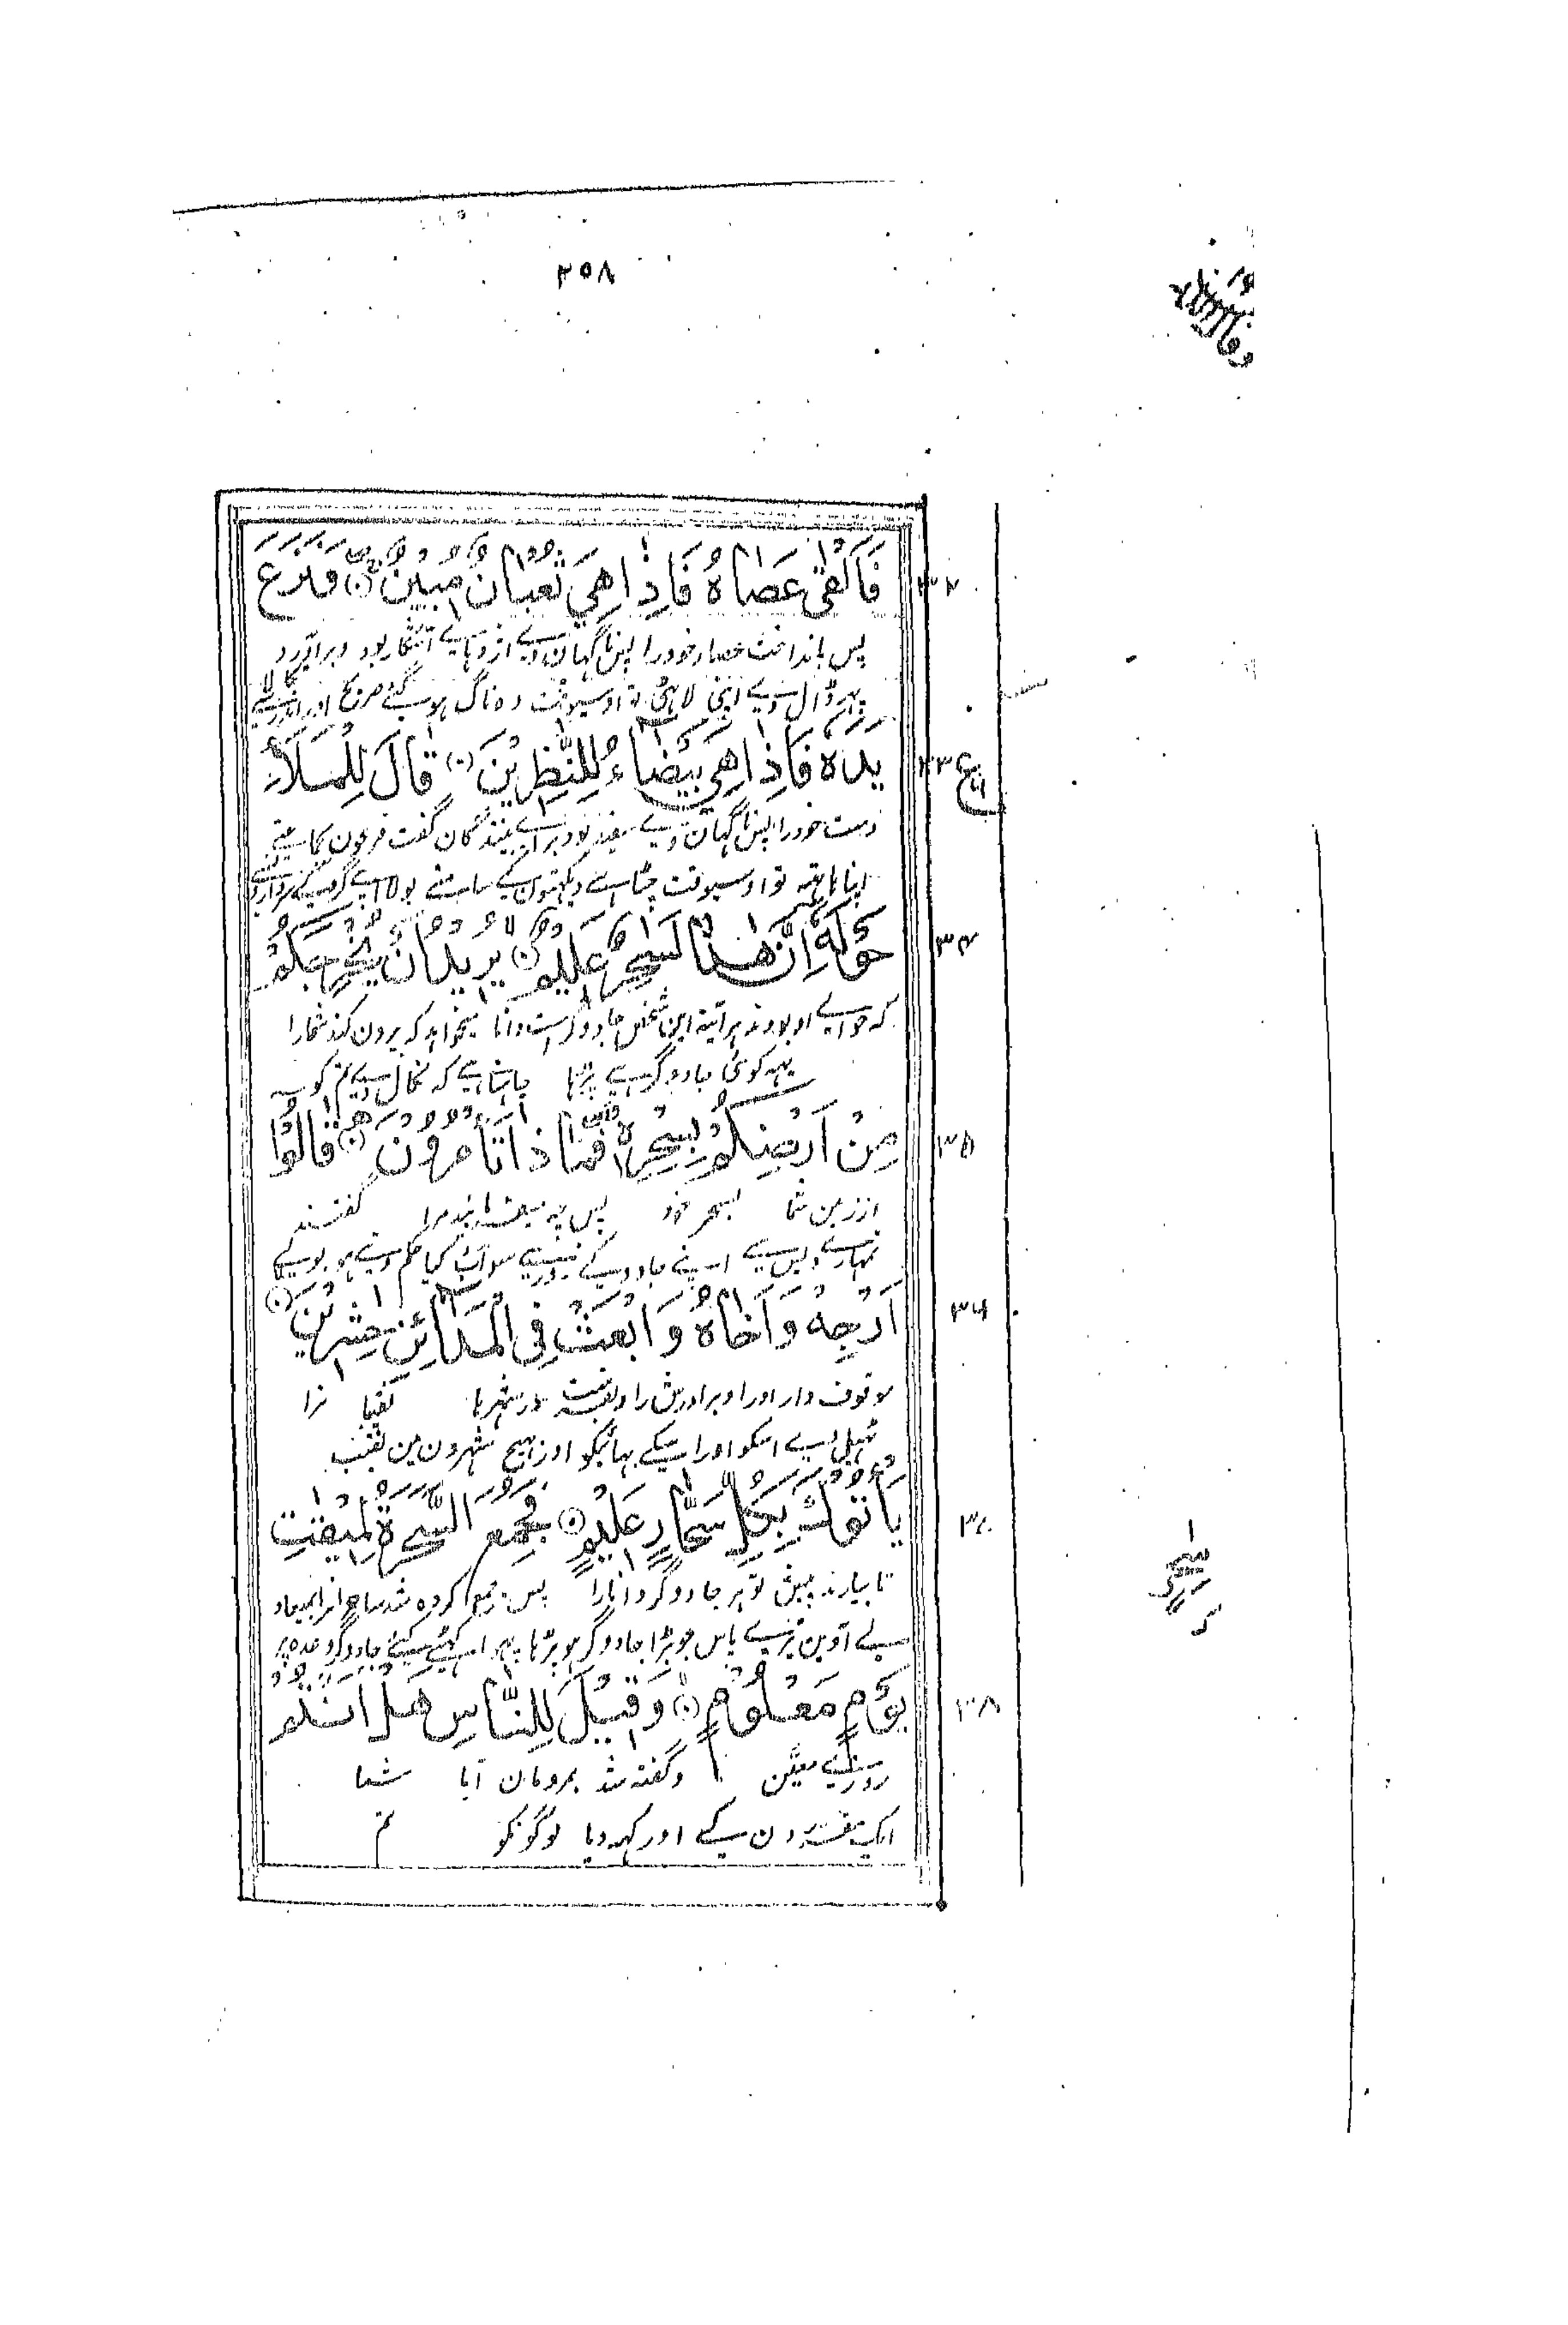 ٣٥٨
وقال الذین
فَاَلْقٰى عَصَاهُ فَاِذَا هِيَ ثُعْبَانٌ مُّبِيْنٌ وَّنَزَعَ
٣٢
پس بانداخت عصار خود را پس ناگهان وے اژدہاے آشکار بود و برآورد
پهر ڈال دیے اپنی لاٹهی تو اوسیوقت وه ناگ ہوگئے صریح اور اندر سے نکالا
يَدَهٗ فَاِذَا هِيَ بَيْضَاءُ لِلنّٰظِرِيْنَ قَالَ لِلْمَلَاِ
٣٣ ع
دست خود را پس ناگهان وے سفید بود براے بینندگان گفت فرعون بجماعتے
اپنا ہاتهه تو اوسیوقت چٹا ہے دیکهتوں کے سامنے بولا اپنے گرد کے سرداروں سے
حَوْلَهٗ اِنَّ هٰذَا لَسٰحِرٌ عَلِيْمٌ يُّرِيْدُ اَنْ يُّخْرِجَكُمْ
٣٤
که حوالے او بودند ہر آئینه این شخص جادوگر است دانا میخواہد که بیرون کند شمارا
یہه کوئی جادوگر ہے پڑہا چاہتا ہے که نکال دیے تم کو
مِّنْ اَرْضِكُمْ بِسِحْرِهٖ فَمَاذَا تَاْمُرُوْنَ قَالُوْا
٣٥
از زمین شما بسحر خود پس چه میفرمائید مرا گفتند
تمہارے دیس سے اپنے جادو کے زور سے سو اب کیا حکم دیتے ہو بولے
اَرْجِهْ وَاَخَاهُ وَابْعَثْ فِي الْمَدَاۤئِنِ حٰشِرِيْنَ
٣٦
موقوف دار او را و برادرش را و بفرست در شهرہا نقیبا نرا
ڈهیل دے اسکو اور اسکے بهائیکو اور بهیج شہرون مین نقیب
يَاْتُوْكَ بِكُلِّ سَحَّارٍ عَلِيْمٍ فَجُمِعَ السَّحَرَةُ لِمِيْقَاتِ
٣٧
تا بیارند پیش تو ہر جادوگر دانا را پس جمع کرده شد ساحرانرا بمیعاد
لے آوین تیرے پاس جو بڑا جادوگر ہو پڑہا پهر اکهٹے کیئے جادوگر وعده پر
يَوْمٍ مَّعْلُوْمٍ وَّقِيْلَ لِلنَّاسِ هَلْ اَنْتُمْ
٣٨
روزے معیّن و گفته شد بمردمان آیا شما
ایک مقرر دن کے اور کہه دیا لوگونکو تم